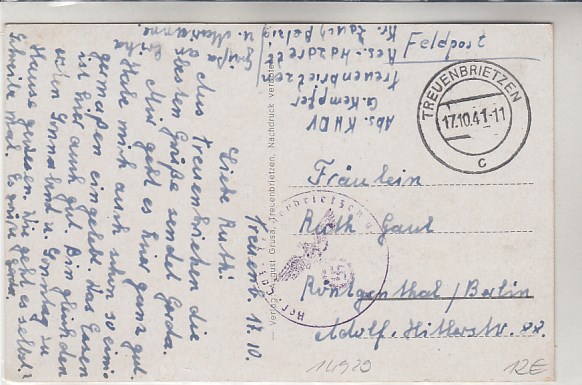 Treuenb. 17.10.
Liebe Ruth!
Aus Treuenbrietzen die
besten Grüße sendet Gerda.
Mir geht es hier ganz gut.
Habe mich auch schon so eini-
germaßen eingelebt. Das Essen
ist hier auch gut. Bin gleich den
ersten Sonnabend u. Sonntag zu
Hause gewesen. Wie geht es selbst?
Schreibe mal. Es grüßt Gerda.
Grüße
u. Marianne
Feldpost
Abs. KHDV
G. Kempfer
Treuenbrietzen
Res.-Lazarett
Kr. Zauch Belzig
TREUENBRIETZEN
17.10.41-11
c
Fräulein
Ruth Gaul
Röntgenthal/Berlin
Adolf-Hitlerstr. 22
Verlag August Grusa, Treuenbrietzen. Nachdruck verboten
Res. Laz. Treuenbrietzen
14929
12€